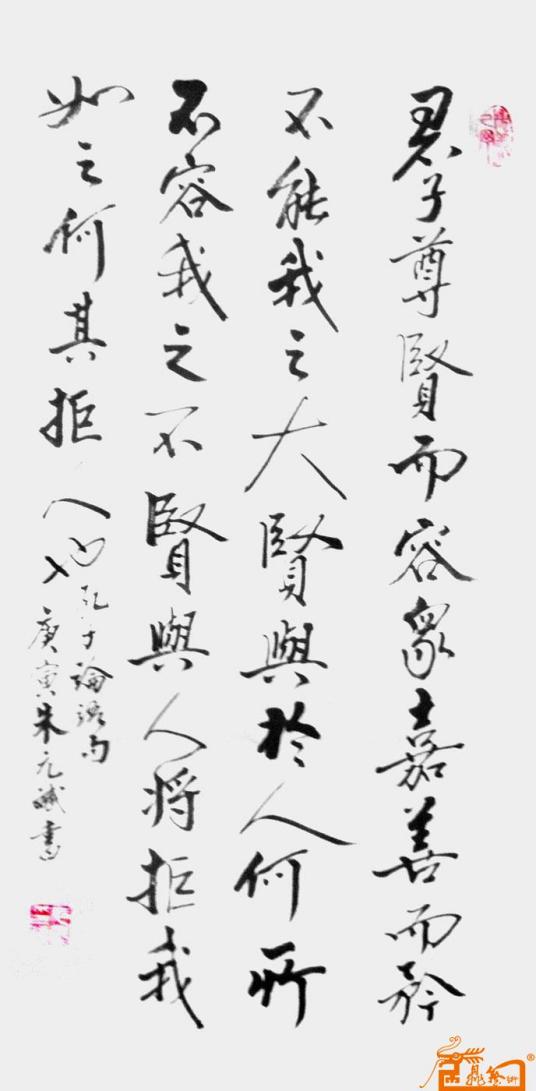 君子尊賢而容眾嘉善而矜
不能我之大賢與於人何所
不容我之不賢與人將拒我
如之何其拒人也
孔子論語句
庚寅朱元斌書